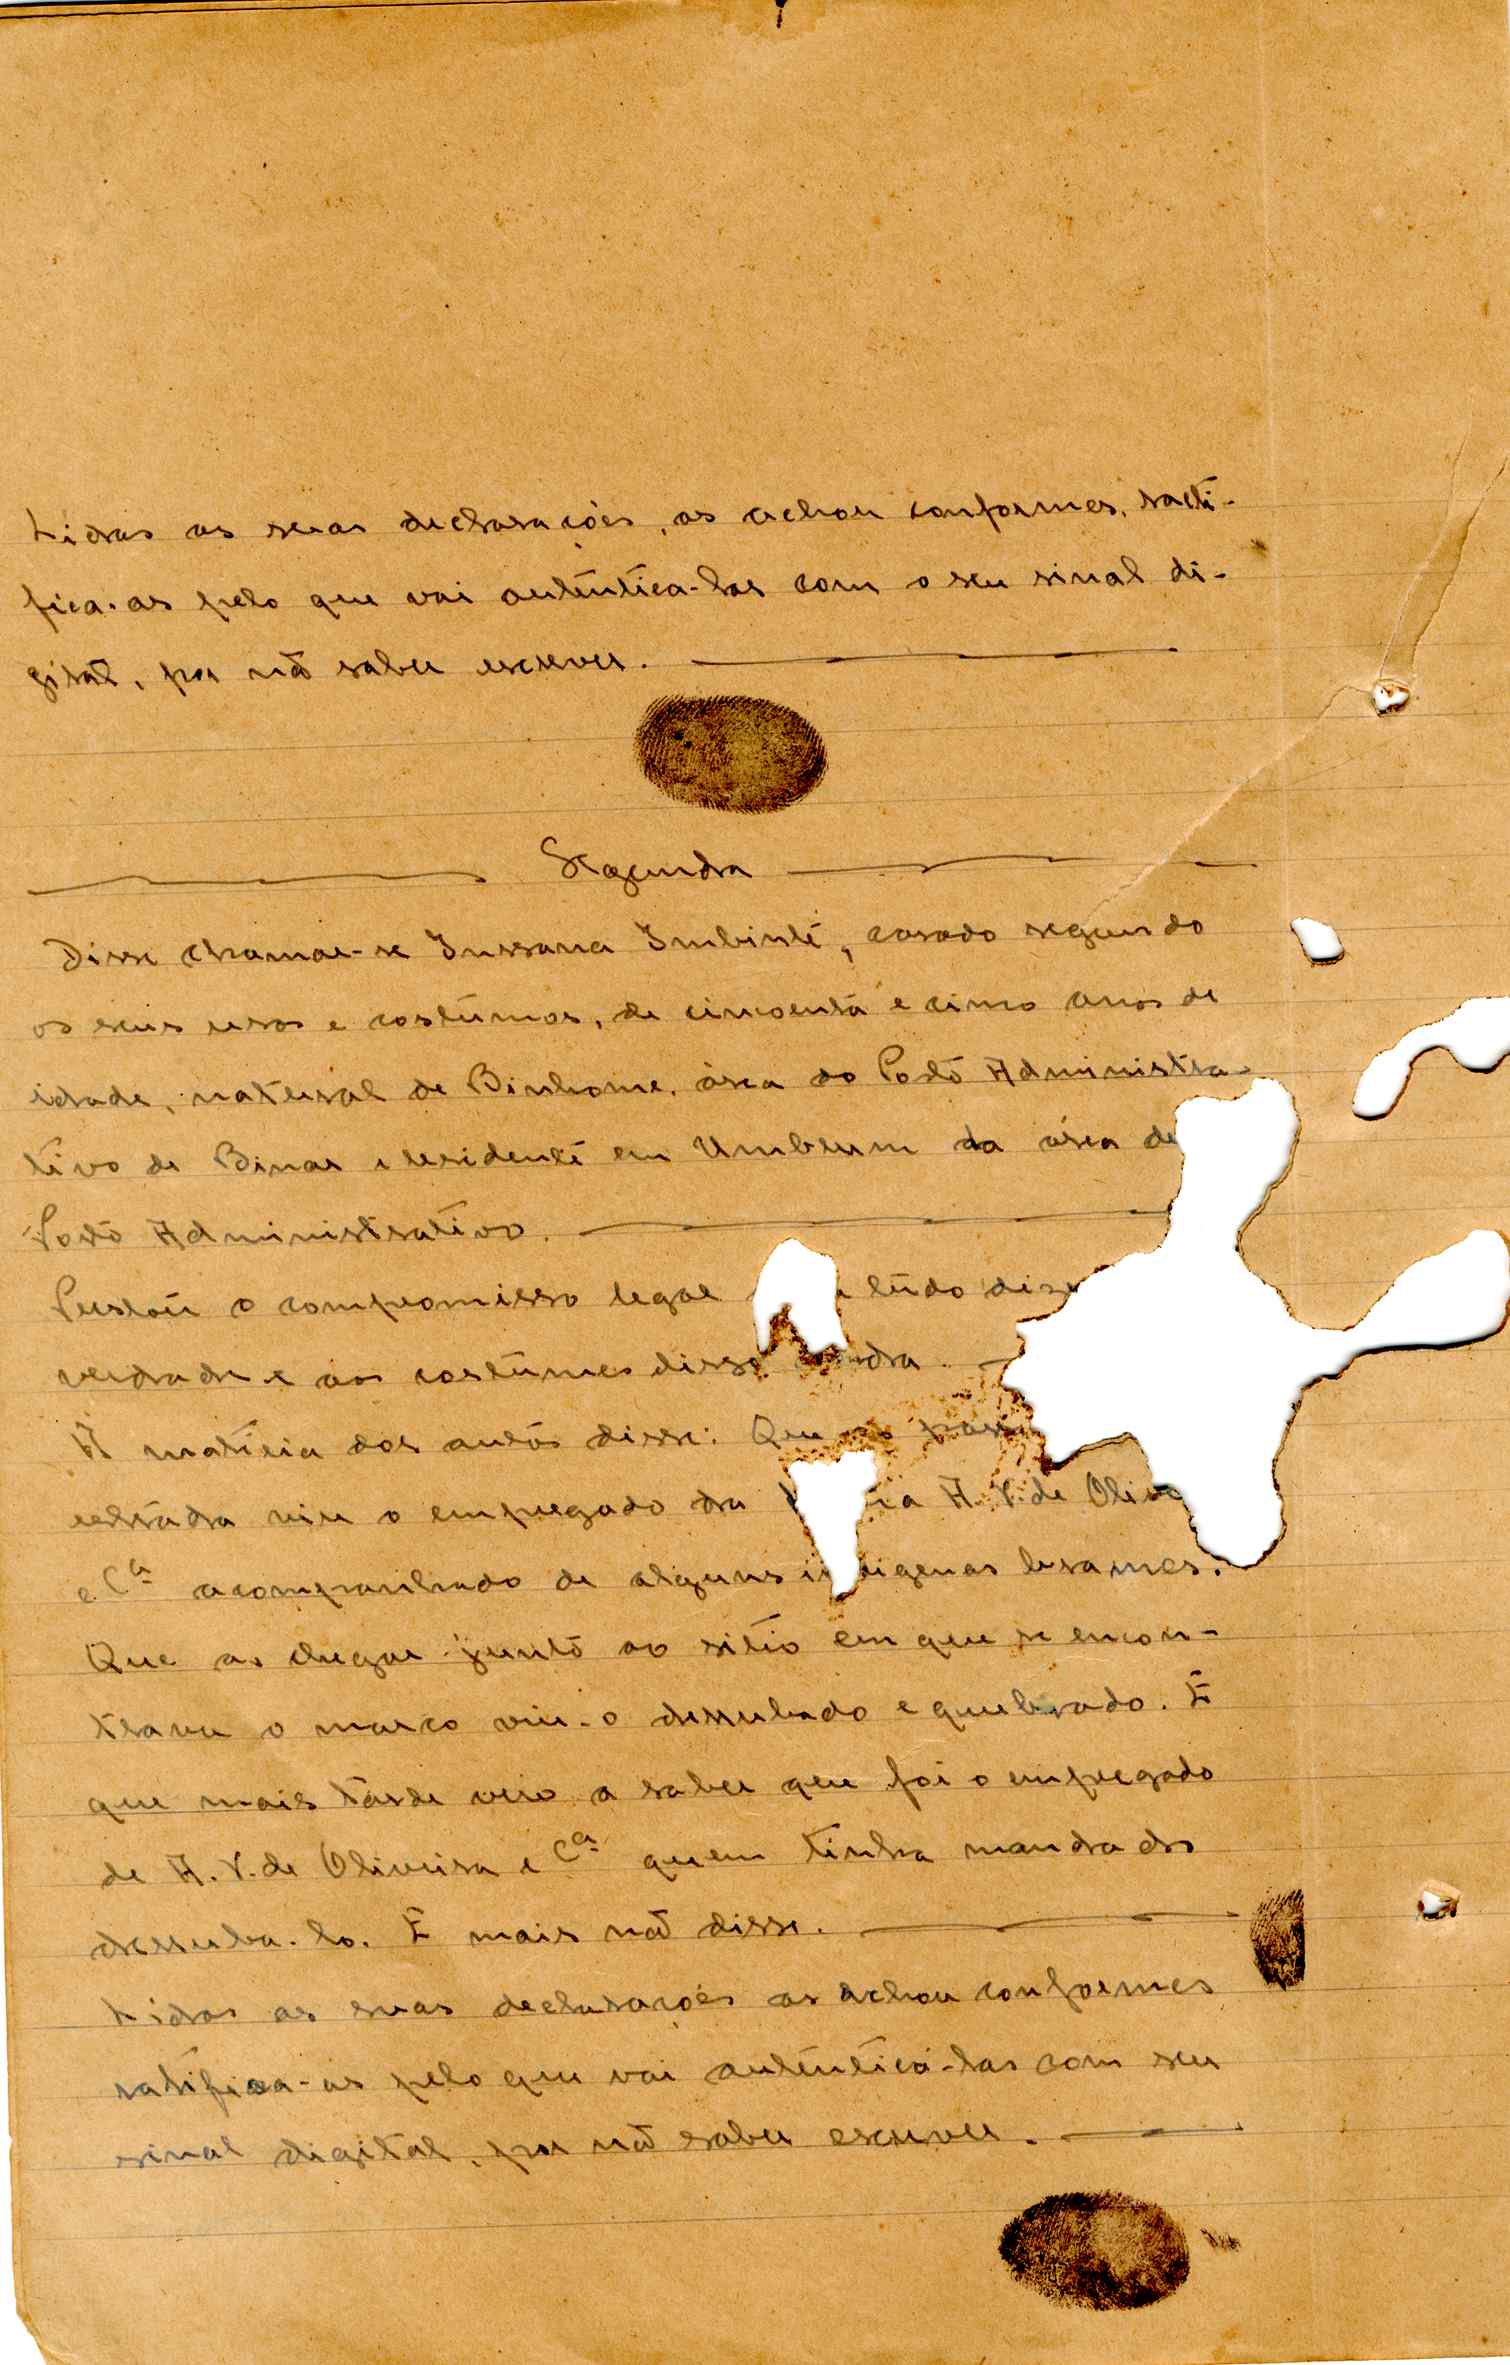 Lidas as suas declarações, as achou conformes, racti-
fica-as pelo que vai autentica-las com o seu sinal di-
gital, por não saber escrever.
Segunda
Disse chamar-se Inssana Imbinté, casado segundo
os seus usos e costumes, de cincoenta e cinco anos de
idade, natural de Binhome, área do Posto Administra-
tivo de Binar e residente em Umbrum da área de
Posto Administrativo.
Prestou o compromisso legal tudo
verdade e aos costumes disse
Á matéria dos autos disse: Que
estrada viu o empregado da A. V. de
e Cª acompanhado de alguns brames.
Que ao chegar junto ao sitio em que se encon-
trava o marco viu-o derrubado e quebrado. E
que mais tarde veio a saber que foi o empregado
de A. V. de Oliveira e Cª quem tinha mandado
derruba-lo. E mais não disse.
Lidas as suas declarações as achou conformes
ratifica-as pelo que vai autenticá-las com seu
sinal digital, por não saber escrever.